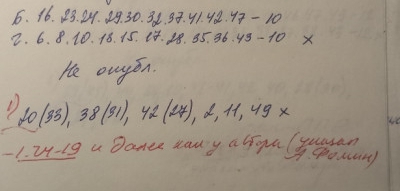 Б. 16. 23. 24. 29. 30. 32. 37. 41. 42. 47 – 10
Ч. 6. 8. 10. 13. 15. 17. 28. 35. 36. 43 – 10 х
Не опубл.
1) 20 (33), 38 (31), 42 (27), 2, 11, 49 х
– 1. 24-19 и далее как у автора (указал А. Фомин)